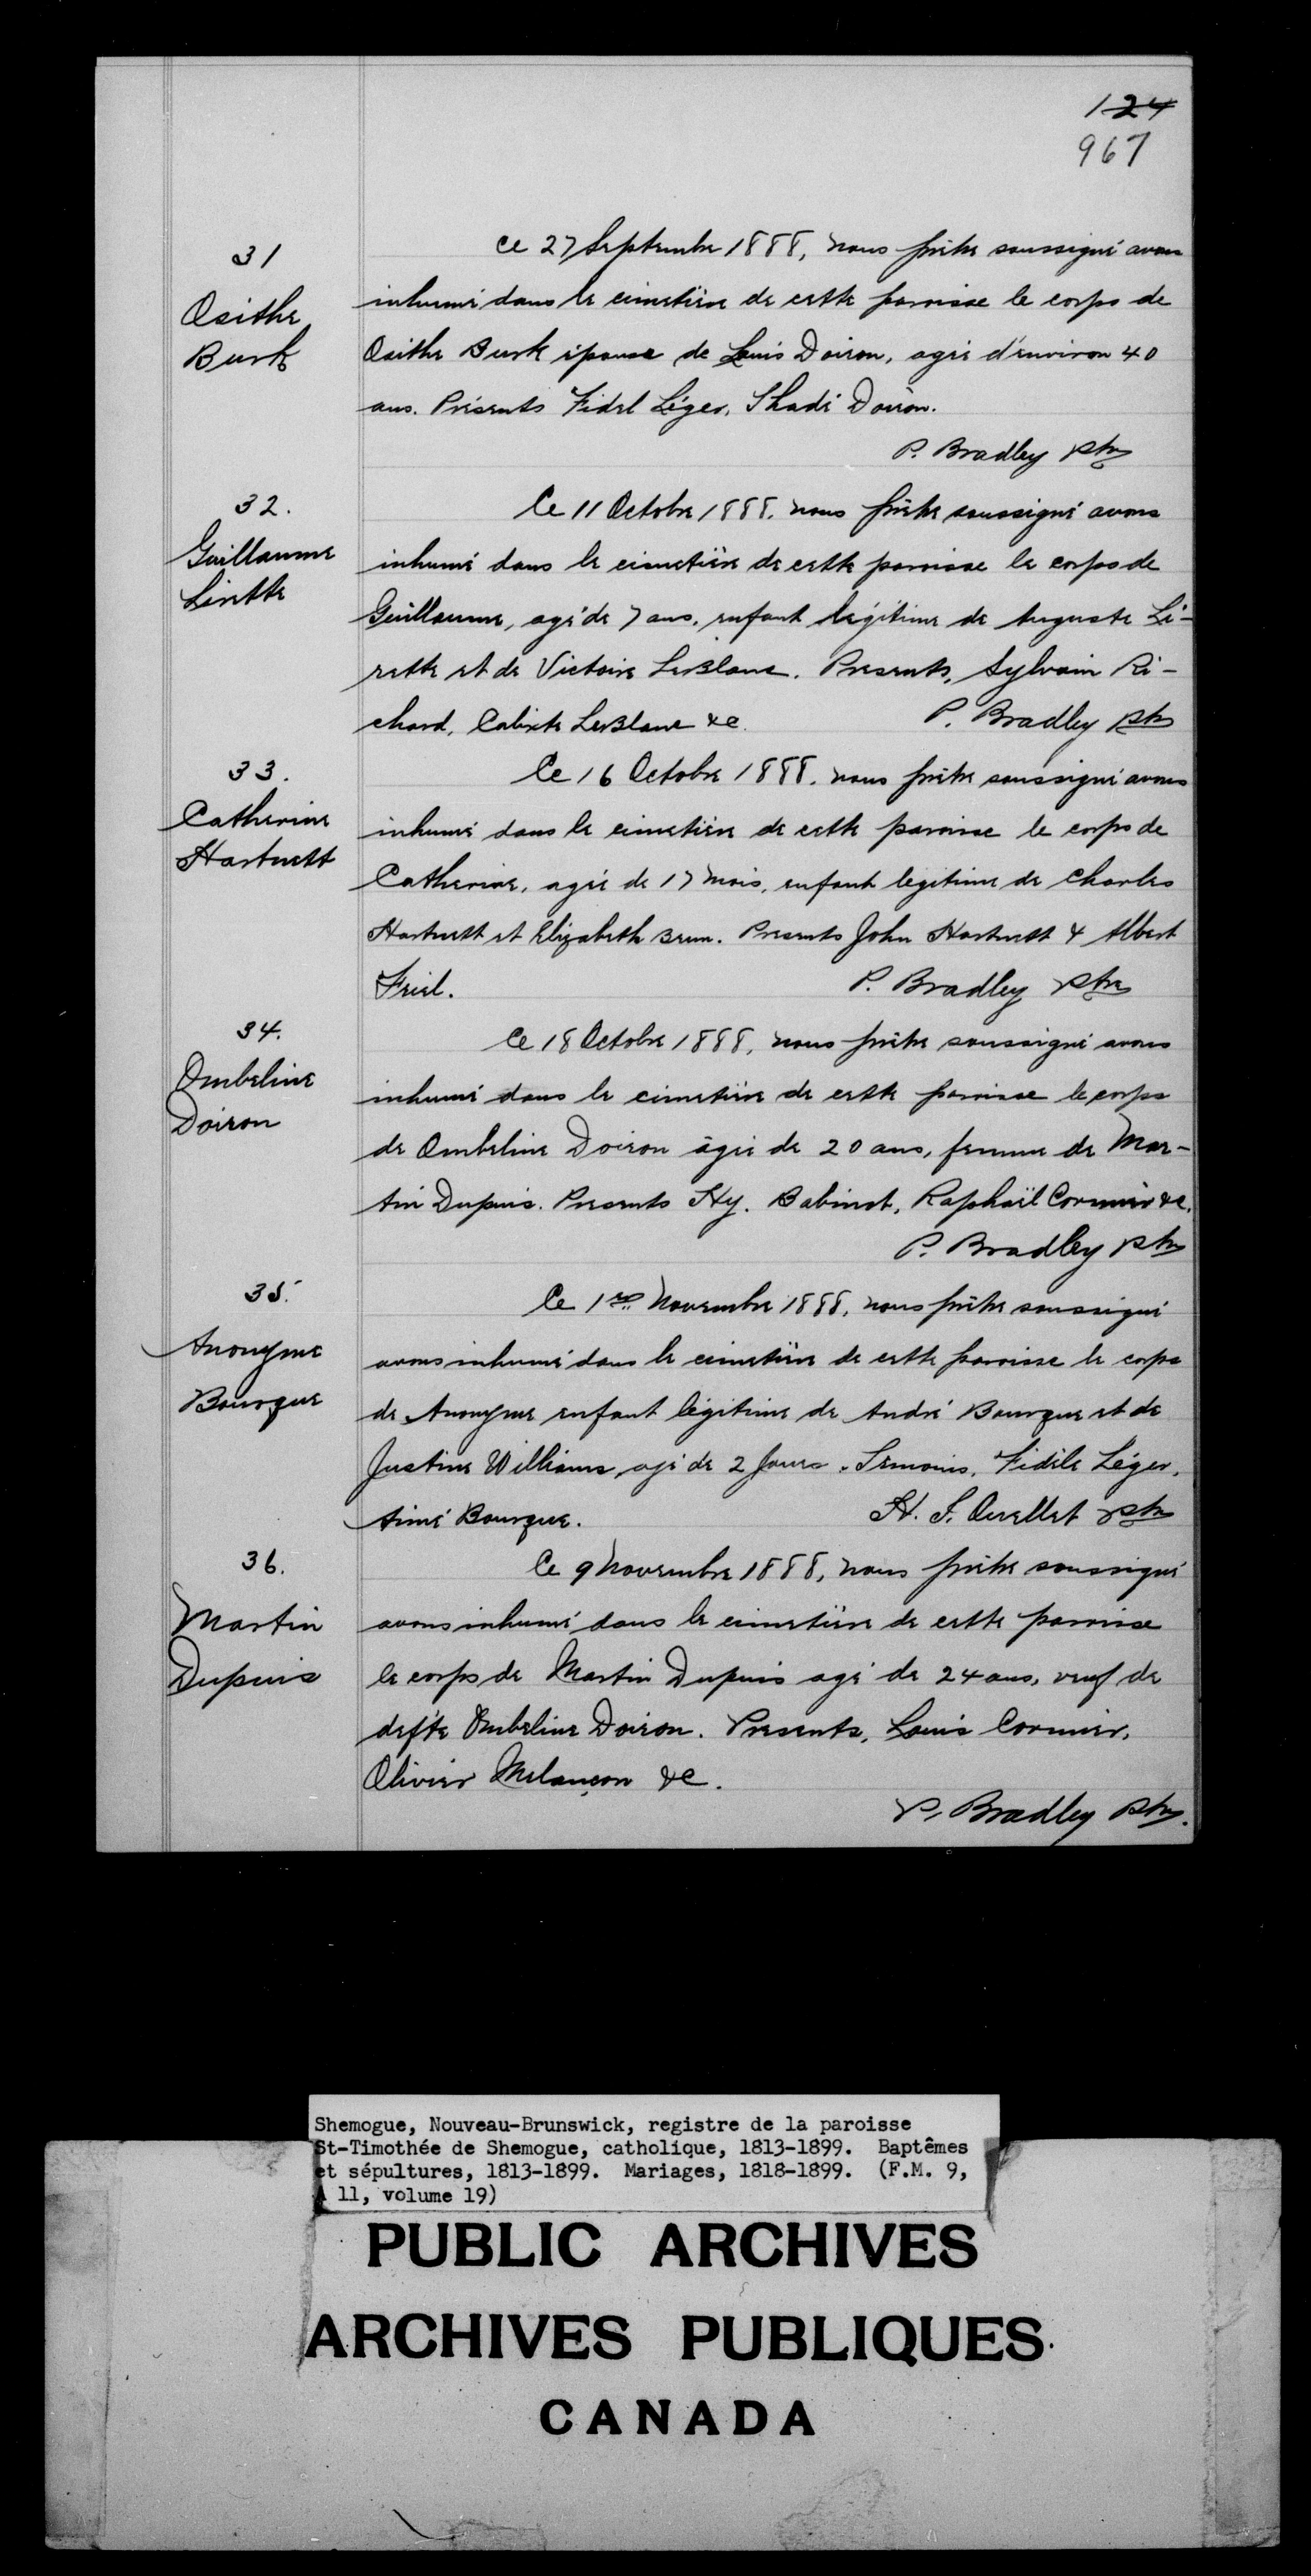 124
967
31
Osithe
Burk
Ce 27 Septembre 1888, nous prêtre soussigné avons
inhumé dans le cimetière de cette paroisse le corps de
Osithe Burk épouse de Louis Doiron, agée d'environ 40
ans. Présents Fidel Léger, Thadé Doiron.
P. Bradley Ptre
32.
Guillaume
Lirette
Ce 11 Octobre 1888, nous prêtre soussigné avons
inhumé dans le cimetière de cette paroisse le corps de
Guillaume, agé de 7 ans, enfant légitime de Auguste Li-
rette et de Victoire LeBlanc. Presents, Sylvain Ri-
chard, Calixte LeBlanc &c.
P. Bradley Ptre
33.
Catherine
Hartnett
Ce 16 Octobre 1888, nous prêtre soussigné avons
inhumé dans le cimetière de cette paroisse le corps de
Catherine, agée de 17 mois, enfant legitime de Charles
Hartnett et Elizabeth Breen. Presents John Hartnett & Albert
Friel.
P. Bradley Ptre
34.
Ombeline
Doiron
Ce 18 Octobre 1888, nous prêtre soussigné avons
inhumé dans le cimetière de cette paroisse le corps
de Ombeline Doiron âgée de 20 ans, femme de Mar-
tin Dupuis. Presents Hy. Babinot, Raphaël Cormier &c.
P. Bradley Ptre
35.
Anonyme
Bourque
Ce 1er Novembre 1888, nous prêtre soussigné
avons inhumé dans le cimetière de cette paroisse le corps
de Anonyme enfant légitime de André Bourque et de
Justine Williams, agé de 2 Jours. Temoins, Fidèle Léger,
Aimé Bourque.
H. T. Ouellet Ptre
36.
Martin
Dupuis
Ce 9 Novembre 1888, nous prêtre soussigné
avons inhumé dans le cimetière de cette paroisse
le corps de Martin Dupuis agé de 24 ans, veuf de
defte Ombeline Doiron. Presents, Louis Cormier,
Olivier Melançon &c.
P. Bradley Ptre.
Shemogue, Nouveau-Brunswick, registre de la paroisse
St-Timothée de Shemogue, catholique, 1813-1899. Baptêmes
et sépultures, 1813-1899. Mariages, 1818-1899. (F.M. 9,
A 11, volume 19)
PUBLIC ARCHIVES
ARCHIVES PUBLIQUES
CANADA